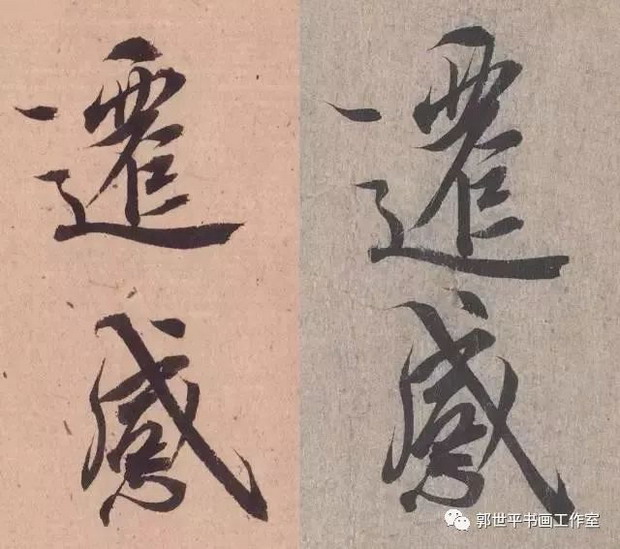 遷
感
遷
感
郭世平书画工作室